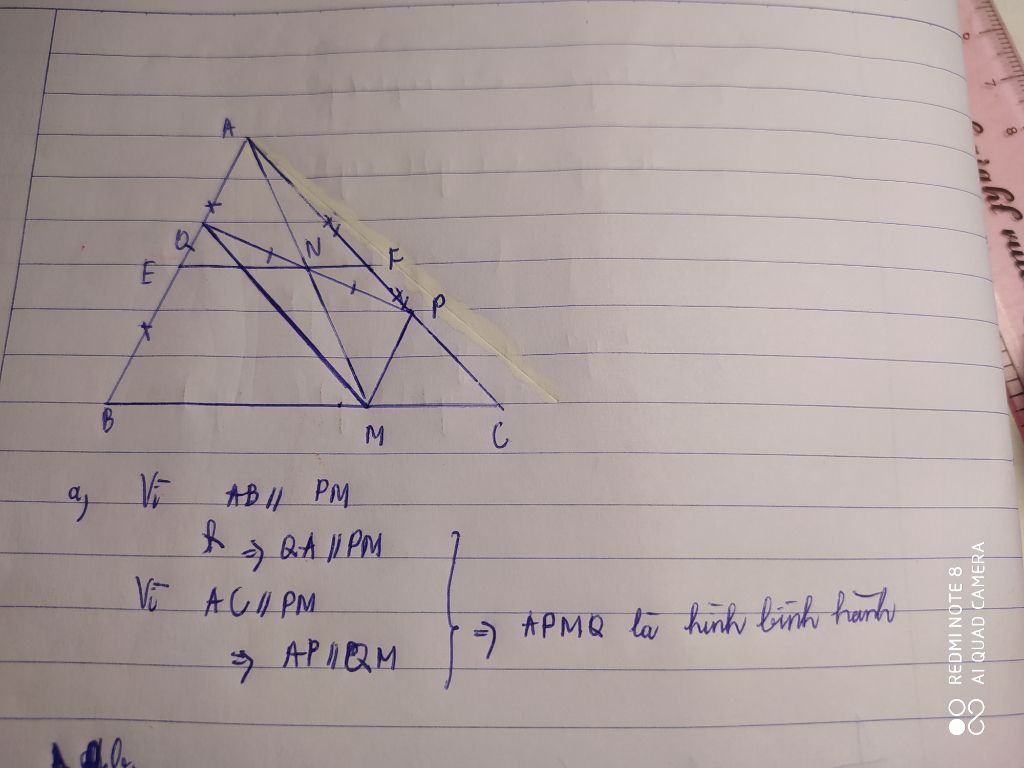 A
Q
N
E
F
P
B
M
C
a, Vì AB // PM
⇒ QA // PM
Vì AC // PM
⇒ AP // QM
⇒ APMQ là hình bình hành
REDMI NOTE 8
AI QUAD CAMERA